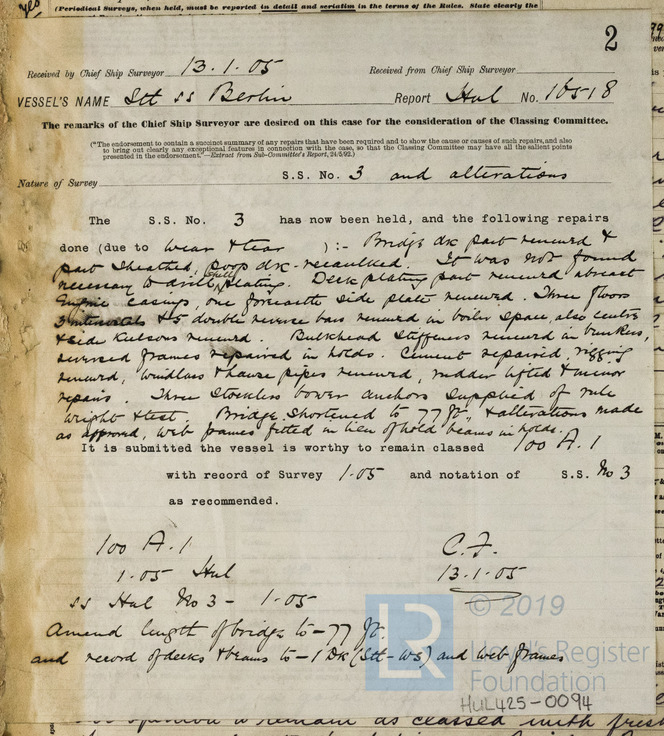 yes
(Periodical Surveys, when held, must be reported in detail and seriatim in the terms of the Rules. State clearly the
2
Received by Chief Ship Surveyor 13.1.05 Received from Chief Ship Surveyor
VESSEL'S NAME Stl ss Berlin Report Hul No. 16518
The remarks of the Chief Ship Surveyor are desired on this case for the consideration of the Classing Committee.
("The endorsement to contain a succinct summary of any repairs that have been required and to show the cause or causes of such repairs, and also
to bring out clearly any exceptional features in connection with the case, so that the Classing Committee may have all the salient points
presented in the endorsement."—Extract from Sub-Committee's Report, 24/5/92.)
Nature of Survey S.S. No. 3 and alterations
The S.S. No. 3 has now been held, and the following repairs
done (due to wear & tear ):- Bridge dk part renewed &
part sheathed, poop dk recaulked. It was not found
necessary to drill shell plating. Deck plating part renewed abreast
Engine casings, one forecastle side plate renewed. Three floors
3 intercostals & 5 double reverse bars renewed in boiler space, also centre
& side keelsons renewed. Bulkhead stiffeners renewed in bunkers,
reversed frames repaired in holds. Cement repaired, rigging
renewed, windlass & hawse pipes renewed, rudder lifted & minor
repairs. Three stockless bower anchors supplied of rule
weight & test. Bridge shortened to 77 ft, & alterations made
as approved, web frames fitted in lieu of hold beams in holds.
It is submitted the vessel is worthy to remain classed 100 A.1
with record of Survey 1.05 and notation of S.S. No 3
as recommended.
100 A.1
1.05 Hul
ss Hul No 3 - 1.05
C.F.
13.1.05
Amend length of bridge to - 77 ft.
and record of decks & beams to - 1 Dk (Stl-ws) and web frames
LR © 2019
Lloyd's Register
Foundation
HUL425-0094
remain as classed with fresh